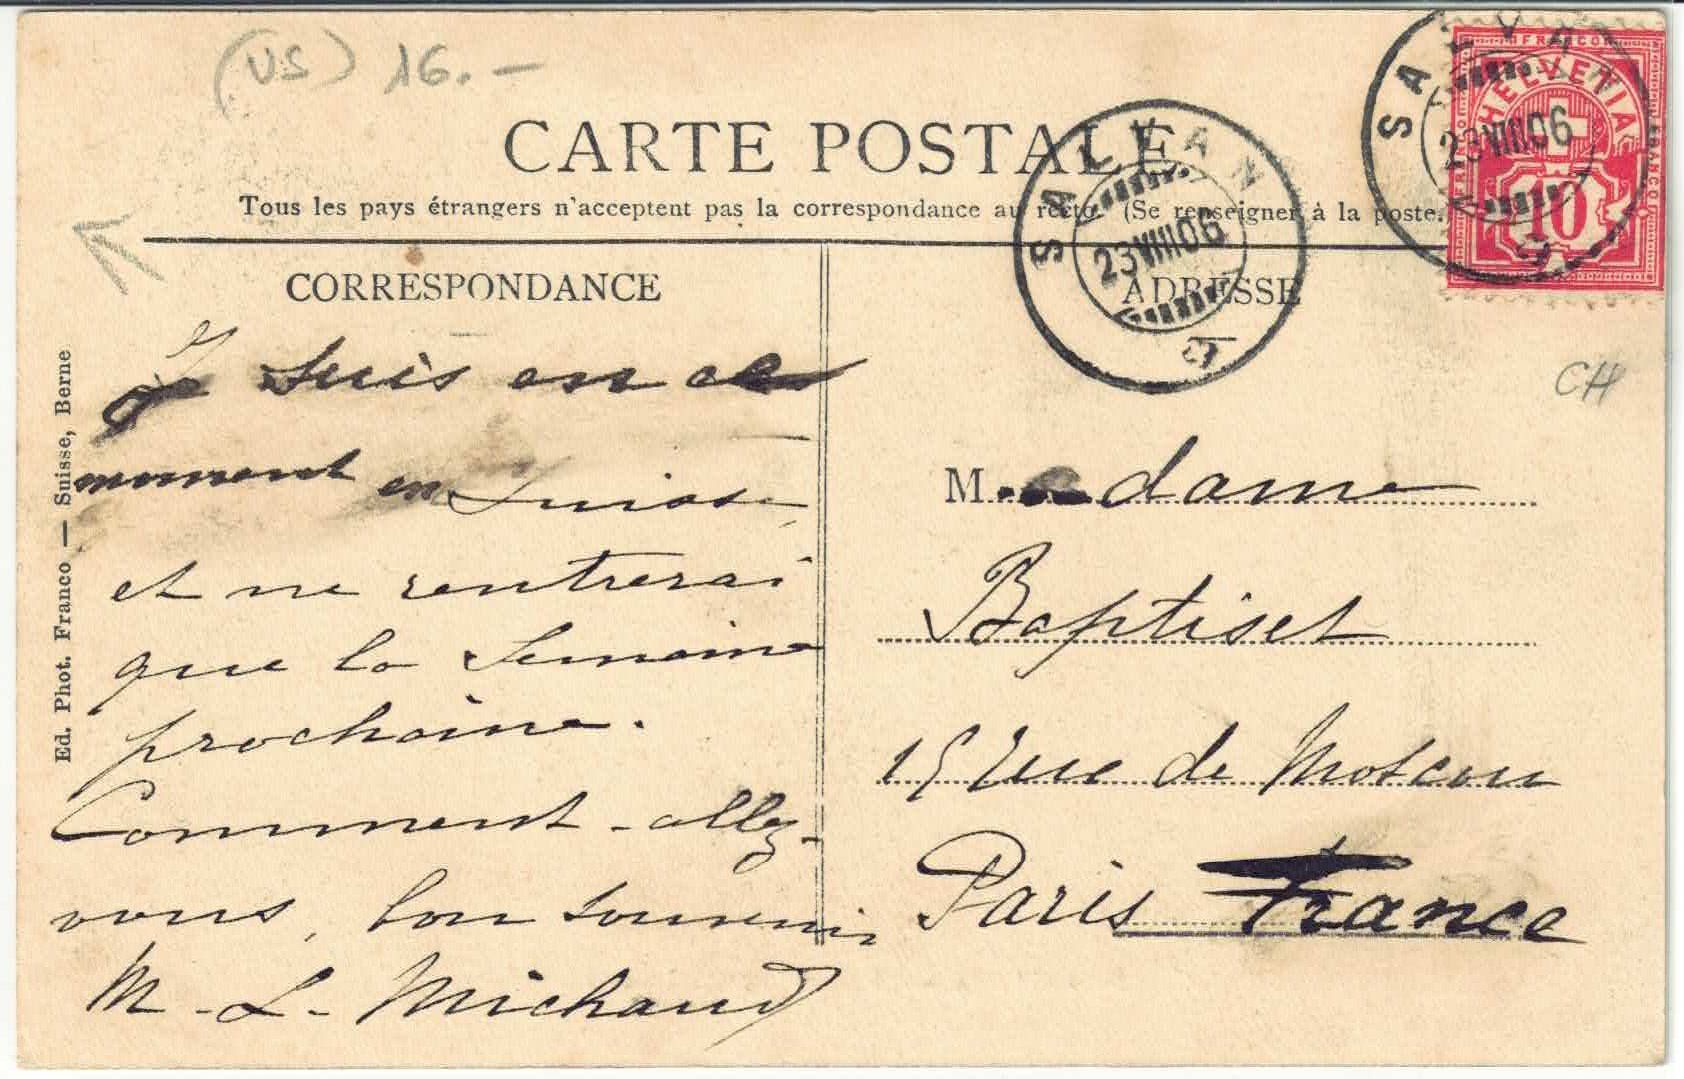 (US) 16.—
CARTE POSTALE
Tous les pays étrangers n'acceptent pas la correspondance au recto. (Se renseigner à la poste.
CORRESPONDANCE
ADRESSE
FRANCO
HELVETIA
FRANCO
FRANCO
10
SALVAN
23.VIII.06
SALVAN
23.VIII.06
CH
Ed. Phot. Franco — Suisse, Berne
Je suis en ce
moment en Suisse
et ne rentrerai
que la Semaine
prochaine.
Comment-allez-
vous, bon souvenir
M.-L. Michaud
Madame
Baptiset
15 rue de Moscou
Paris France